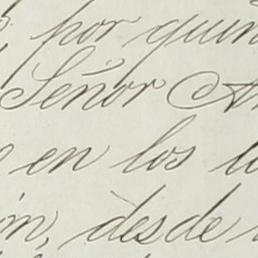 por quin
Señor
en los
desde